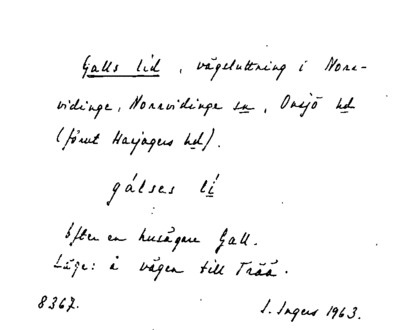 Galls lid, vägsluttning i Norr-
vidinge, Norrvidinge sn, Onsjö hd
(förut Harjagers hd).
gálses lí
Efter en husägare Gall.
Läge: å vägen till Trää.
8367. I. Ingers 1963.